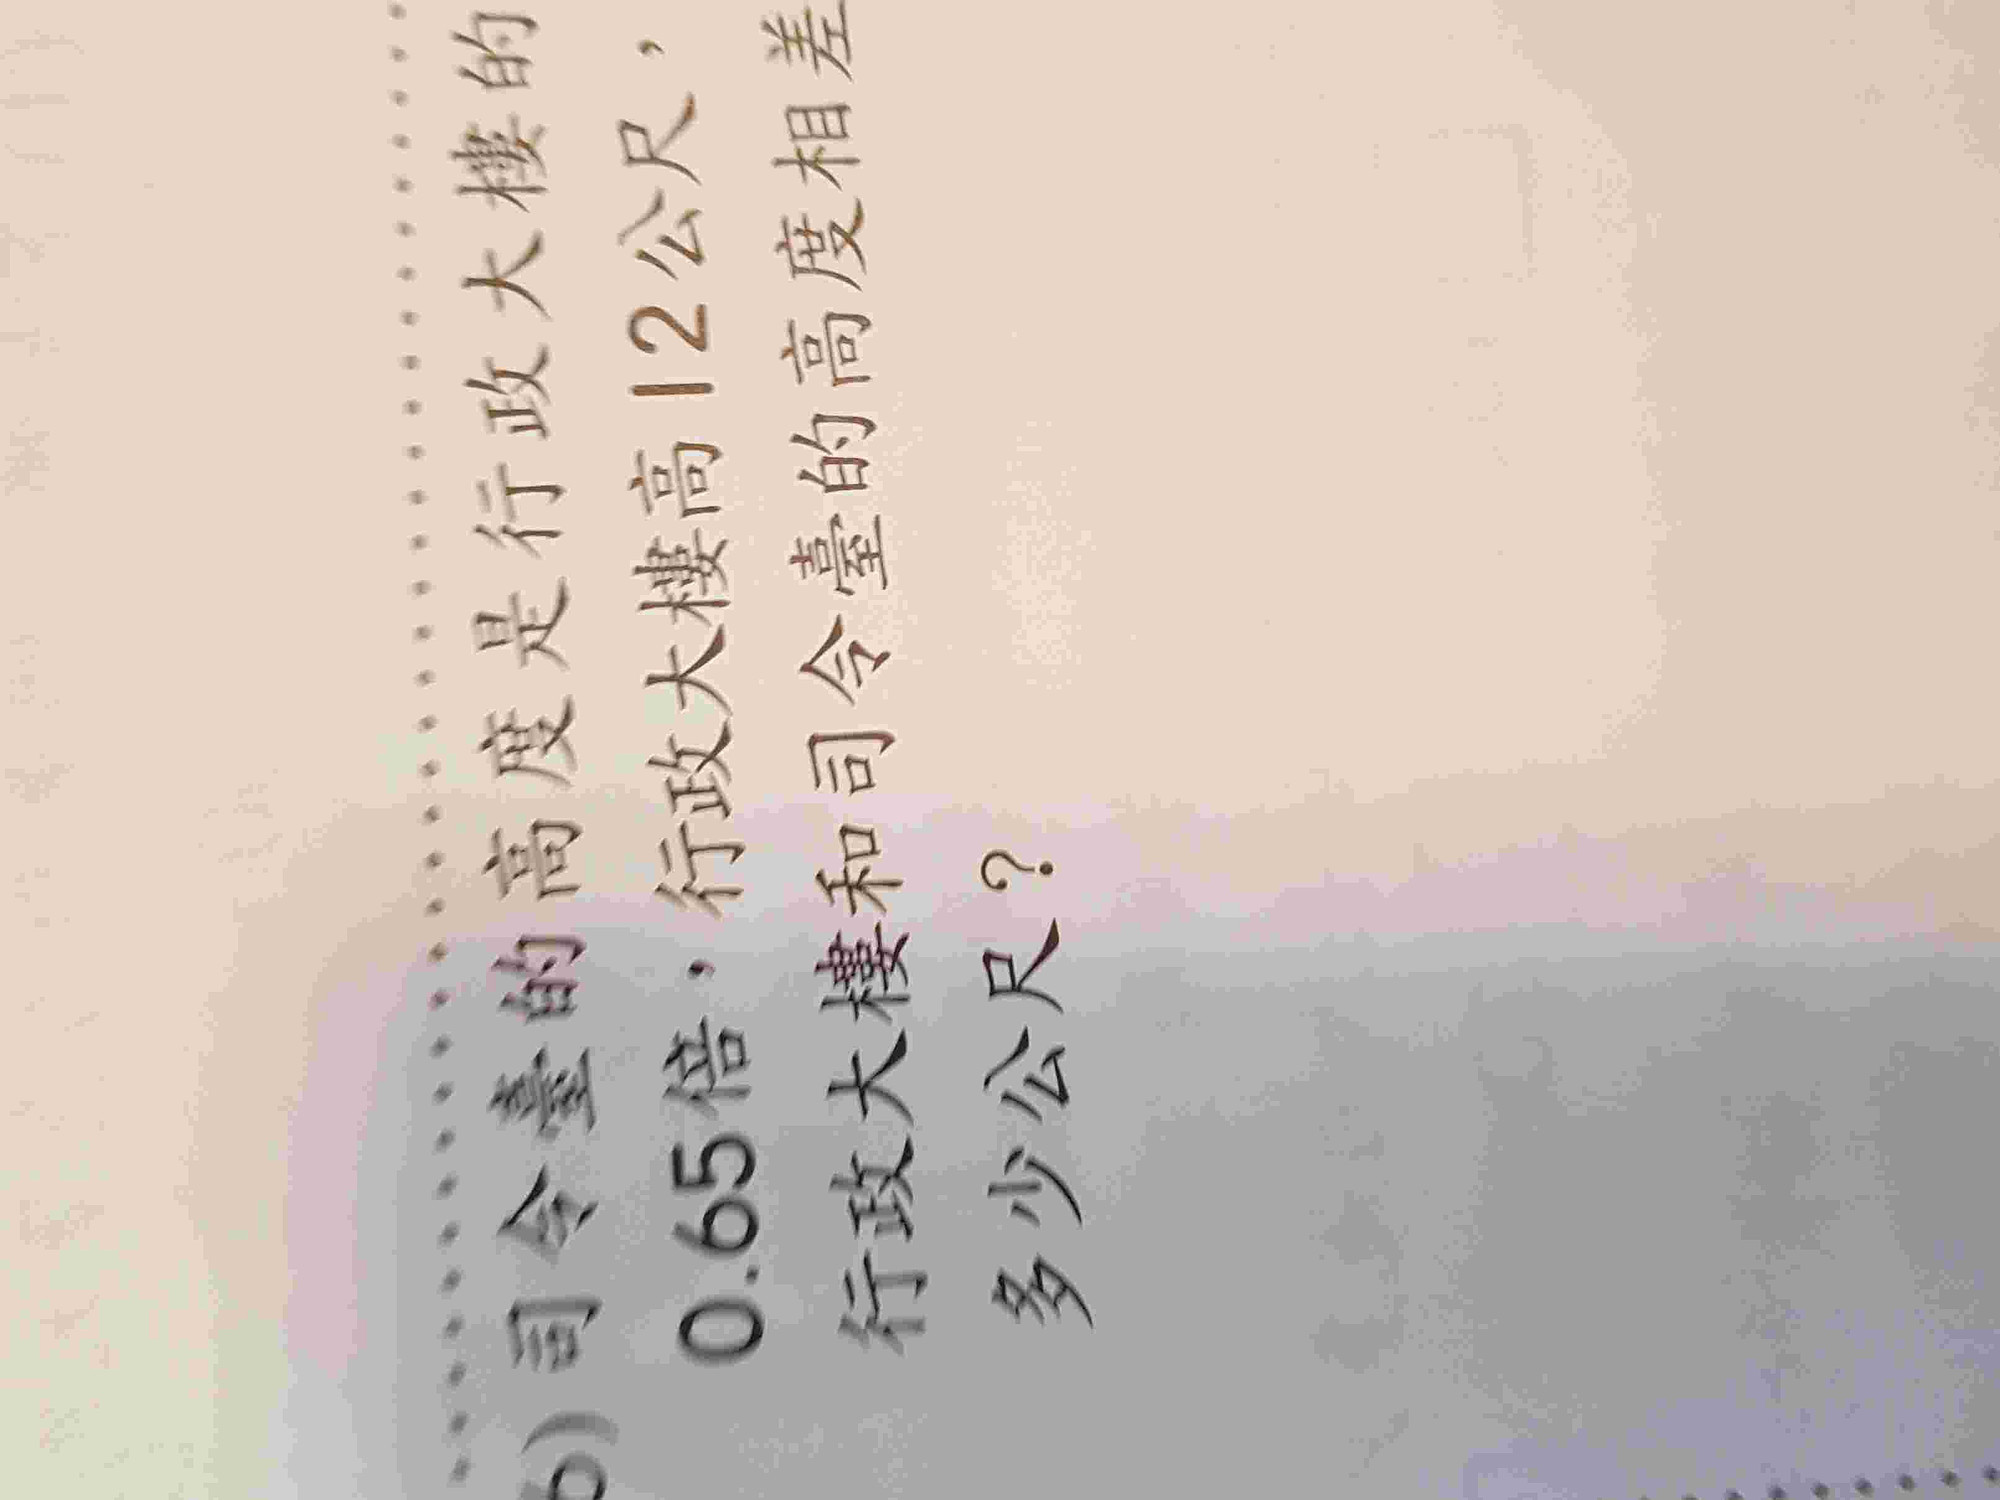 6) 司令臺的高度是行政大樓的
0.65倍，行政大樓高12公尺，
行政大樓和司令臺的高度相差
多少公尺？